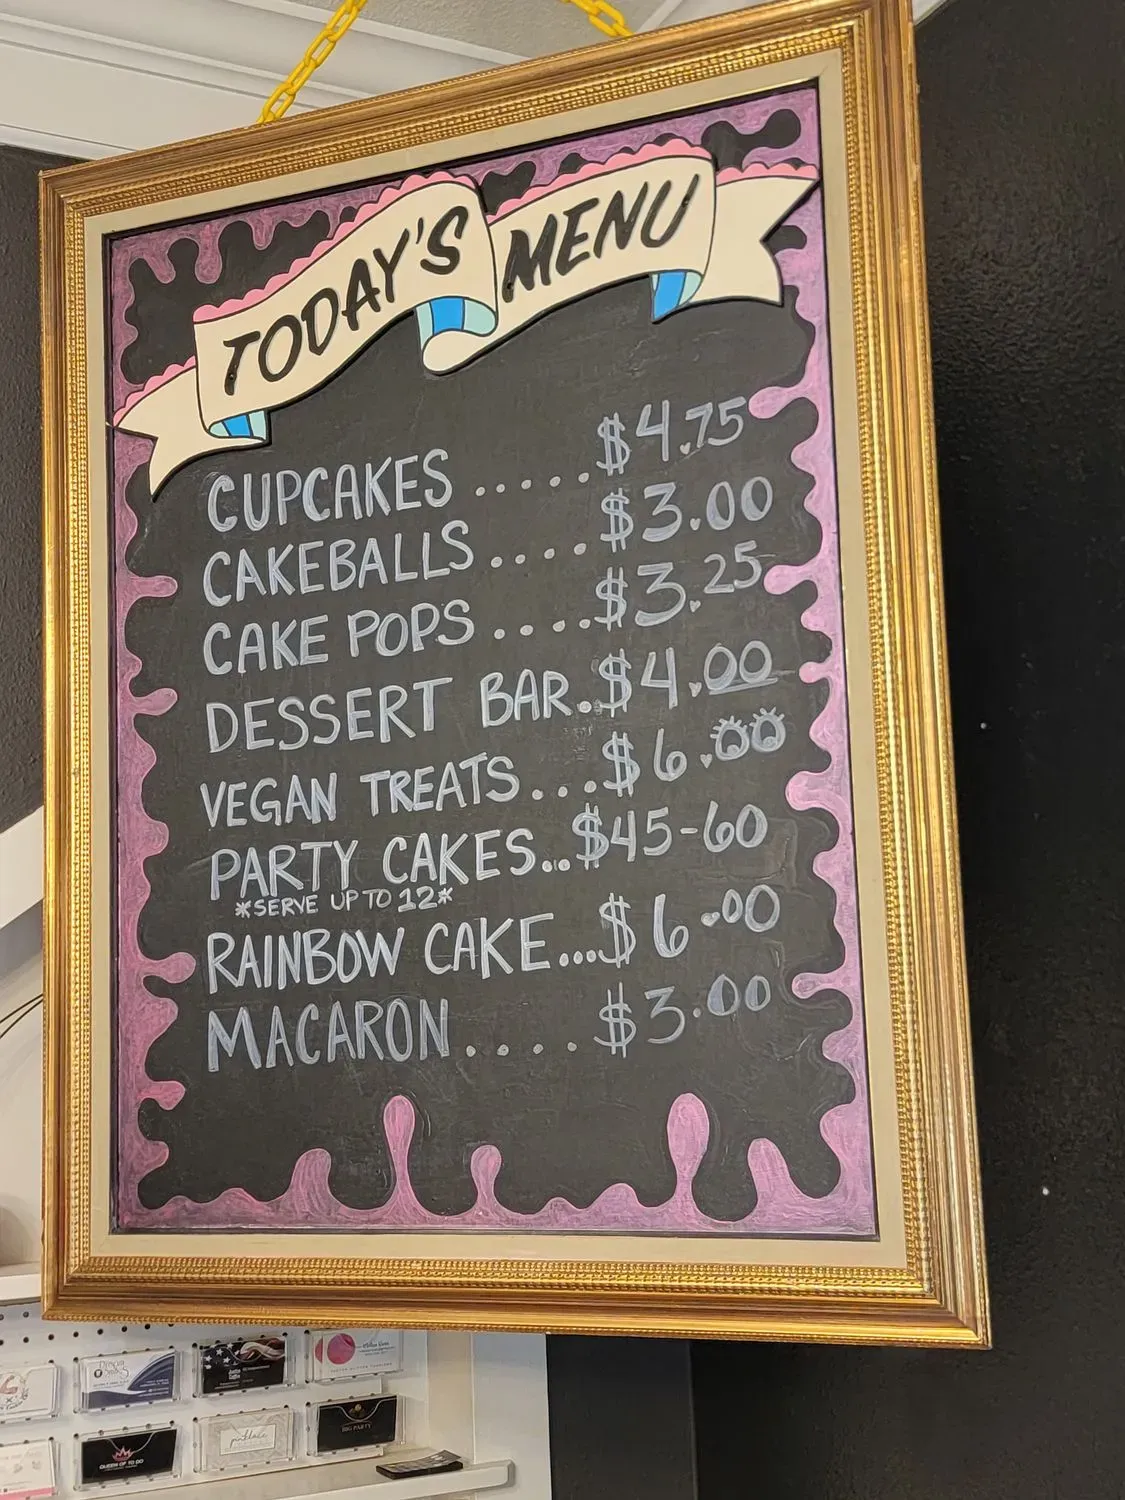 TODAY'S MENU
CUPCAKES ..... $4.75
CAKEBALLS .... $3.00
CAKE POPS .... $3.25
DESSERT BAR.. $4.00
VEGAN TREATS... $6.00
PARTY CAKES.. $45-60
*SERVE UP TO 12*
RAINBOW CAKE... $6.00
MACARON.... $3.00
QUEEN OF TO GO